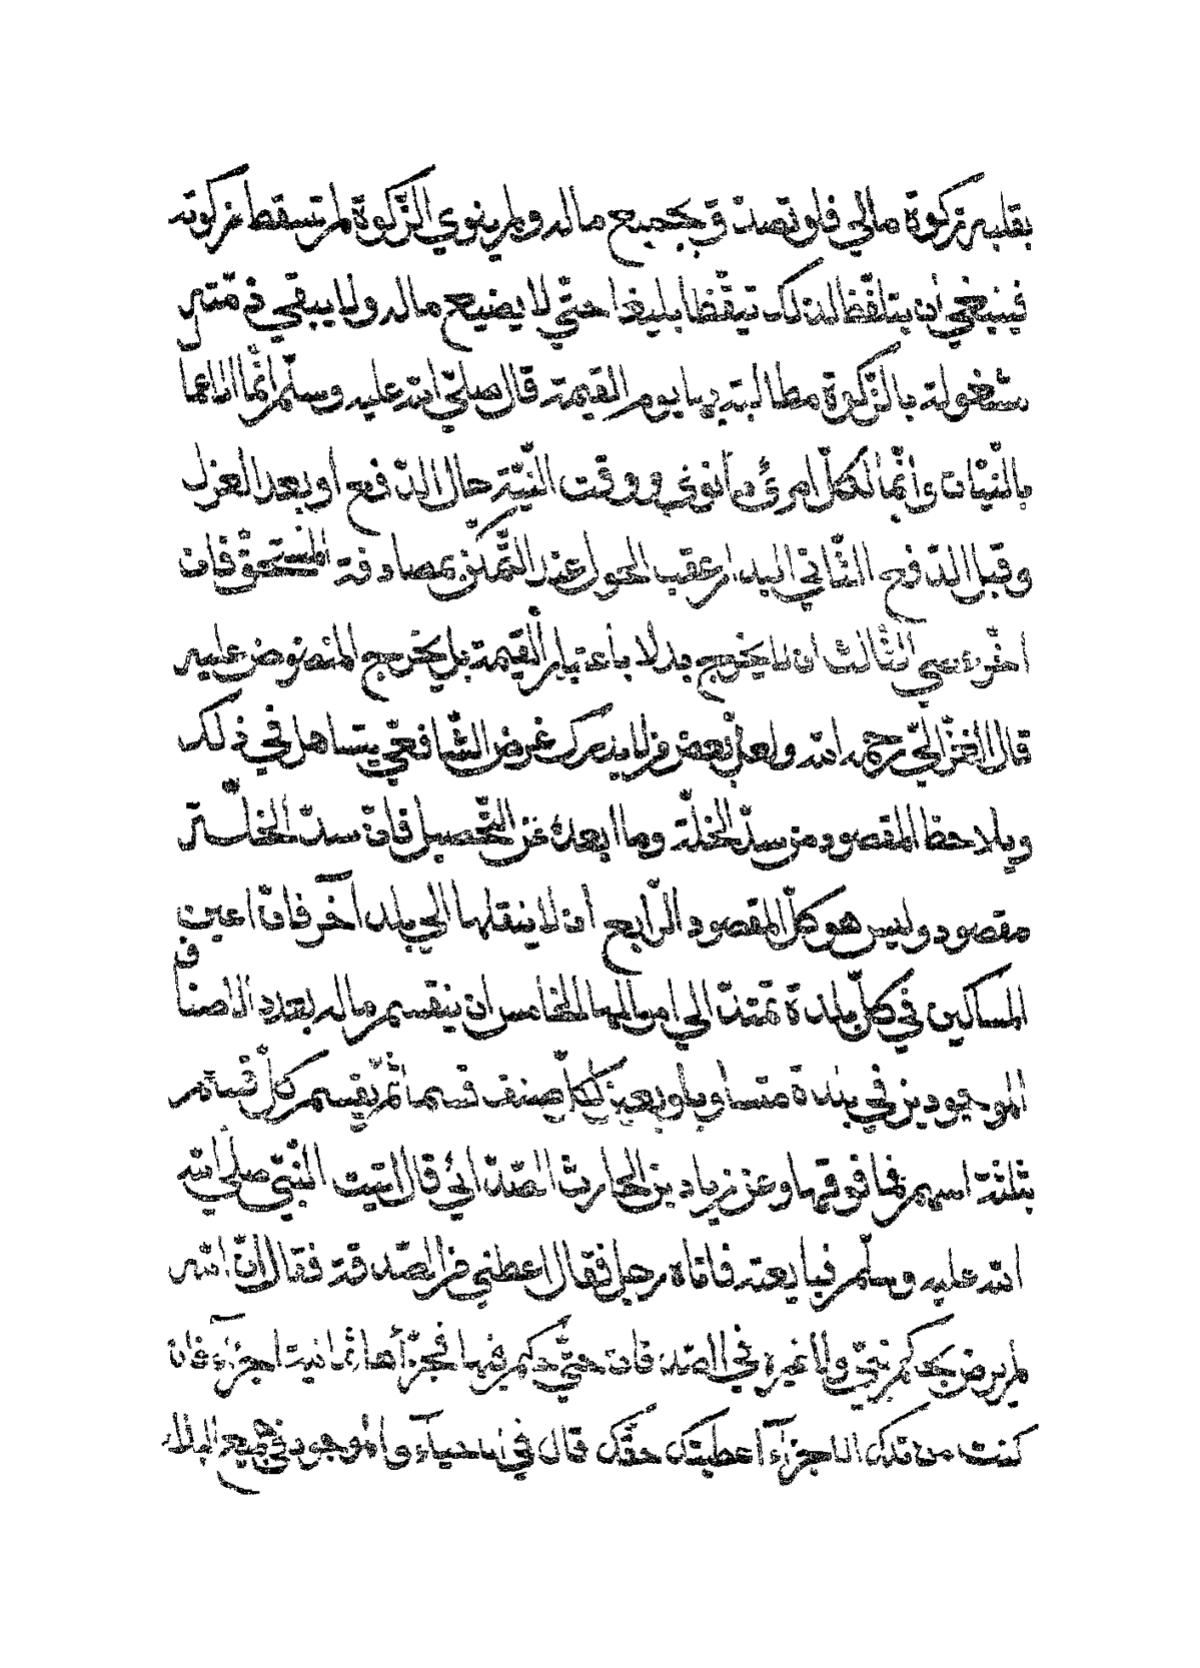 بقلبه زكوة مالي فلو تصدّق بجميع ماله ولم ينوي الزّكوة لم تسقط زكوته
فينبغي ان يتلقّظ لذلك تيقّظا بليغا حتّي لا يضيع ماله ولا يبقي ذمّته
مشغولة بالزّكوة مطالبته بها يوم القيمة قال صلّي الله عليه وسلّم انّما الاعما
بالنّيّات وانّما لكلّ امرئ ما نوي ووقت النّيّة حال الدّفع او بعد العزل
وقبل الدّفع الثّاني البدار عقيب الحول عند التّمكّن بمصادفة المستحقّ فان
اخّر عسي الثّالث ان لا يخرج بدلا باعتبار القيمة بل يخرج المنصوض عليه
قال الغزّاليّ رحمه الله ولعلّ بعض من لا يدرك غرض الشّافعيّ يتساهل في ذلك
ويلاحظ المقصود من سدّ الخلّة وما ابعده عن التّحصيل فانّ سدّ الخلّة
مقصود وليس هو كلّ المقصود الرّابع ان لا ينقلها الي بلد آخر فانّ اعين
المساكين في كلّ بلدة تمتدّ الي اموالها الخامس ان ينقسم ماله بعدد الاصناف
الموجودين في بلدة متساويا ويعين لكلّ صنف قسما ثمّ يقسم كلّ قسم
بثلثة اسهم فما فوقها وعن زياد بن الحارث الصّدّائيّ قال اتيت النّبيّ صلّي الله
الله عليه وسلّم فبايعته فاتاه رجل فقال اعطني من الصّدقة فقال انّ الله
لم يرض بحكم نبيّ ولا غيره في الصّدقات حتّي حكم فيها فجزّأها ثمانية اجزاء فان
كنت من تلك الاجزآء اعطيتك حقّك قال في الاحيآء والموجود في جميع البلاد